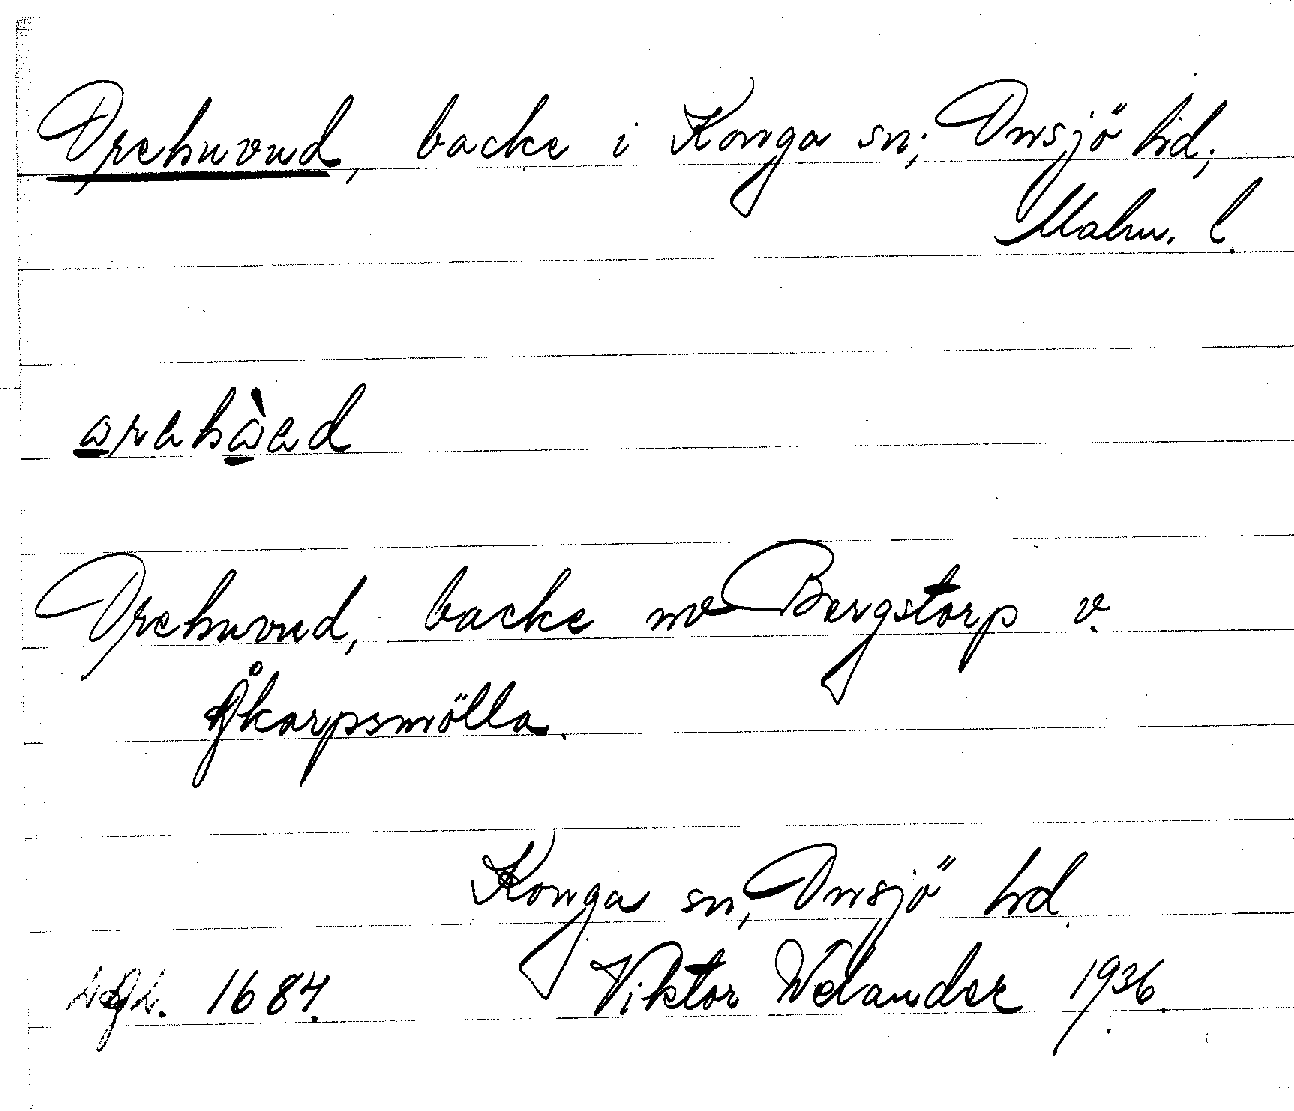 Orehuvud, backe i Konga sn; Onsjö hd;
Malm. l.
Orehuvud, backe nv Bergstorp v.
Åkarpsmölla.
Konga sn, Onsjö hd
1684. Viktor Welander 1936